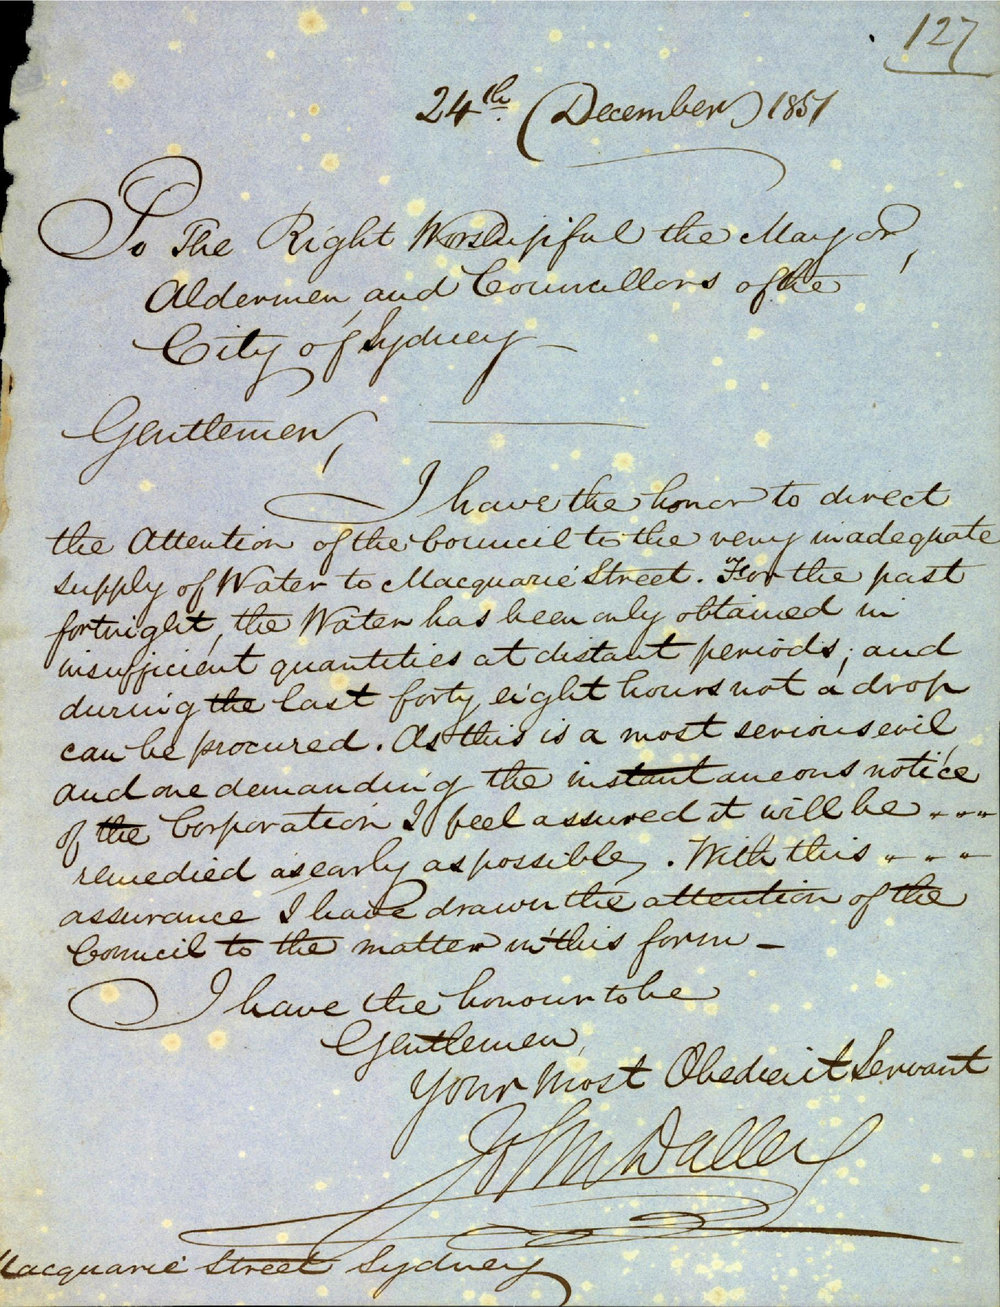 127
24th December 1851
To The Right Worshipful the Mayor,
Aldermen, and Councillors of the
City of Sydney —
Gentlemen,
I have the honor to direct
the Attention of the Council to the very inadequate
supply of Water to Macquarie Street. "For the past
fortnight, the Water has been only obtained in
insufficient quantities at distant periods; and
during the last forty eight hours not a drop
can be procured. As this is a most serious evil
and one demanding the instantaneous notice
of the Corporation I feel assured it will be - - -
remedied as early as possible. With this - - - -
assurance I have drawn the attention of the
Council to the matter in this form —
I have the honour to be
Gentlemen
Your Most Obedient Servant
John Dalley
Macquarie Street Sydney